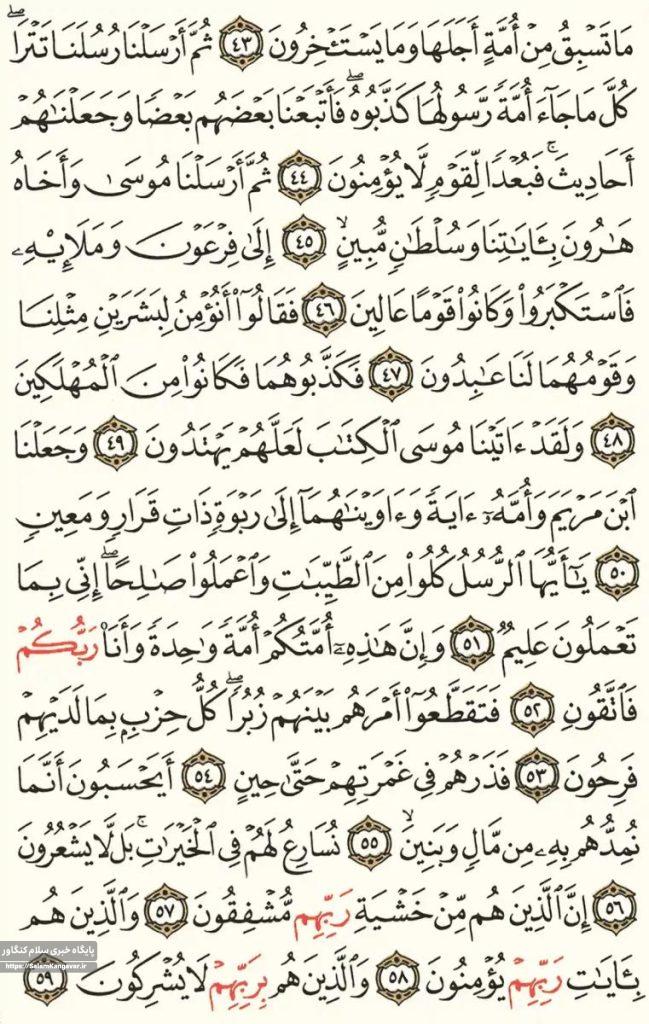 مَا تَسۡبِقُ مِنۡ أُمَّةٍ أَجَلَهَا وَمَا يَسۡتَـٔۡخِرُونَ ٤٣ ثُمَّ أَرۡسَلۡنَا رُسُلَنَا تَتۡرَاۖ
كُلَّ مَا جَآءَ أُمَّةٗ رَّسُولُهَا كَذَّبُوهُۖ فَأَتۡبَعۡنَا بَعۡضَهُم بَعۡضٗا وَجَعَلۡنَٰهُمۡ
أَحَادِيثَۚ فَبُعۡدٗا لِّقَوۡمٖ لَّا يُؤۡمِنُونَ ٤٤ ثُمَّ أَرۡسَلۡنَا مُوسَىٰ وَأَخَاهُ
هَٰرُونَ بِـَٔايَٰتِنَا وَسُلۡطَٰنٖ مُّبِينٍ ٤٥ إِلَىٰ فِرۡعَوۡنَ وَمَلَإِيْهِۦ
فَٱسۡتَكۡبَرُواْ وَكَانُواْ قَوۡمًا عَالِينَ ٤٦ فَقَالُوٓاْ أَنُؤۡمِنُ لِبَشَرَيۡنِ مِثۡلِنَا
وَقَوۡمُهُمَا لَنَا عَٰبِدُونَ ٤٧ فَكَذَّبُوهُمَا فَكَانُواْ مِنَ ٱلۡمُهۡلَكِينَ
٤٨ وَلَقَدۡ ءَاتَيۡنَا مُوسَى ٱلۡكِتَٰبَ لَعَلَّهُمۡ يَهۡتَدُونَ ٤٩ وَجَعَلۡنَا
ٱبۡنَ مَرۡيَمَ وَأُمَّهُۥٓ ءَايَةٗ وَءَاوَيۡنَٰهُمَآ إِلَىٰ رَبۡوَةٖ ذَاتِ قَرَارٖ وَمَعِينٖ
٥٠ يَٰٓأَيُّهَا ٱلرُّسُلُ كُلُواْ مِنَ ٱلطَّيِّبَٰتِ وَٱعۡمَلُواْ صَٰلِحًاۖ إِنِّي بِمَا
تَعۡمَلُونَ عَلِيمٞ ٥١ وَإِنَّ هَٰذِهِۦٓ أُمَّتُكُمۡ أُمَّةٗ وَٰحِدَةٗ وَأَنَا۠ رَبُّكُمۡ
فَٱتَّقُونِ ٥٢ فَتَقَطَّعُوٓاْ أَمۡرَهُم بَيۡنَهُمۡ زُبُرٗاۖ كُلُّ حِزۡبِۭ بِمَا لَدَيۡهِمۡ
فَرِحُونَ ٥٣ فَذَرۡهُمۡ فِي غَمۡرَتِهِمۡ حَتَّىٰ حِينٍ ٥٤ أَيَحۡسَبُونَ أَنَّمَا
نُمِدُّهُم بِهِۦ مِن مَّالٖ وَبَنِينَ ٥٥ نُسَارِعُ لَهُمۡ فِي ٱلۡخَيۡرَٰتِۚ بَل لَّا يَشۡعُرُونَ
٥٦ إِنَّ ٱلَّذِينَ هُم مِّنۡ خَشۡيَةِ رَبِّهِم مُّشۡفِقُونَ ٥٧ وَٱلَّذِينَ هُم
بِـَٔايَٰتِ رَبِّهِمۡ يُؤۡمِنُونَ ٥٨ وَٱلَّذِينَ هُم بِرَبِّهِمۡ لَا يُشۡرِكُونَ ٥٩
پایگاه خبری سلام کنگاور
https://SalamKangavar.ir